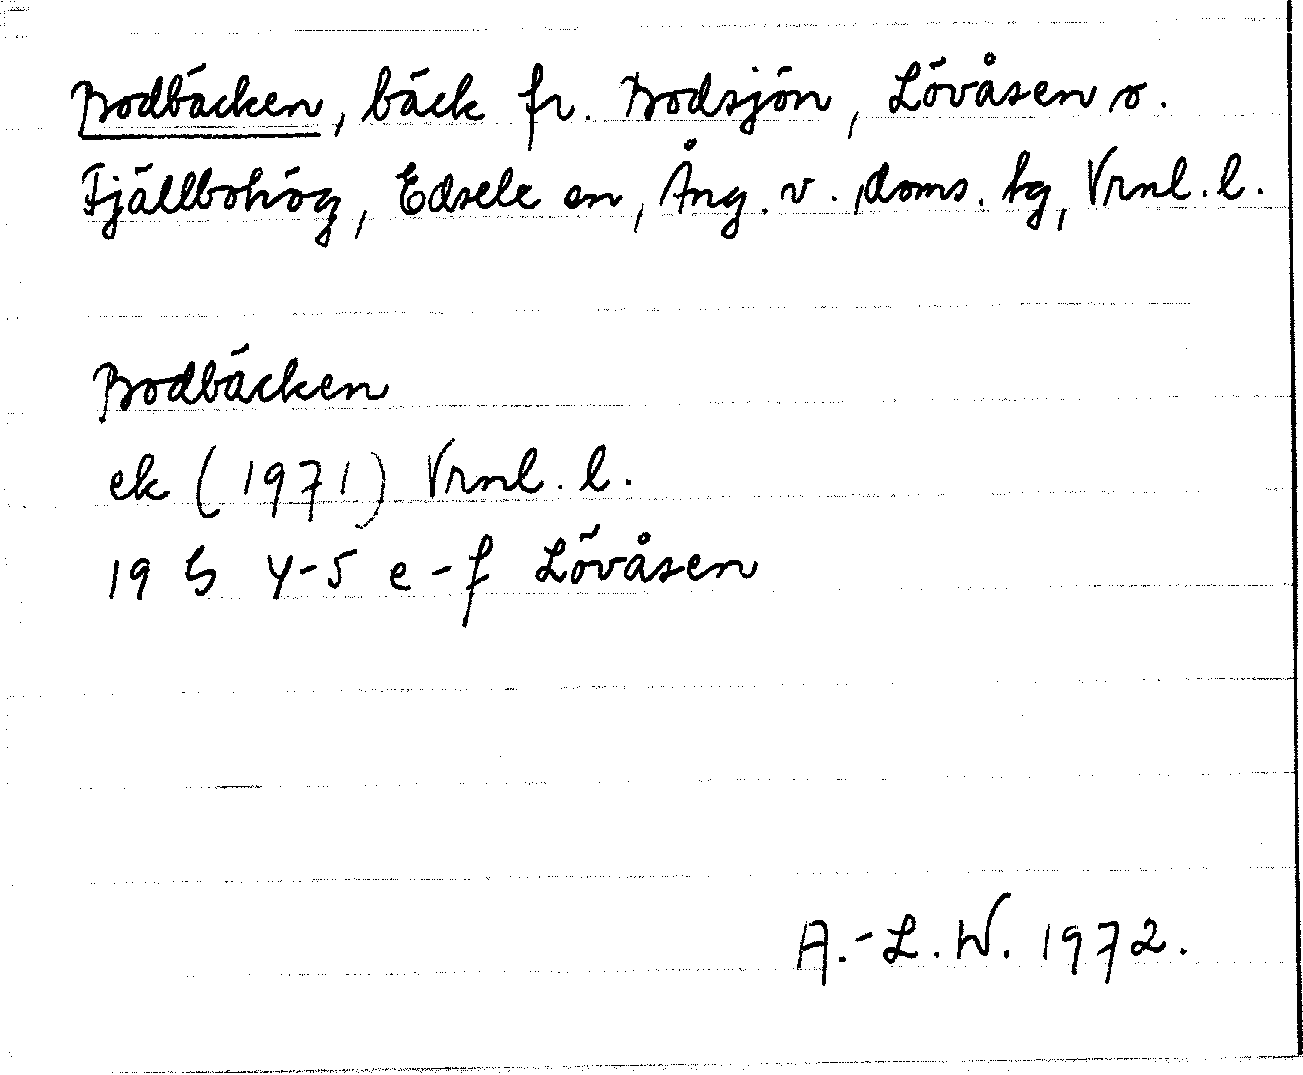 Bodbäcken, bäck fr. Bodsjön, Lövåsen o.
Fjällbohög, Edsele sn, Ång. v. doms. tg, Vrnl. l.
Bodbäcken
ek (1971) Vrnl. l.
19 G 4-5 e-f Lövåsen
A.-L. W. 1972.